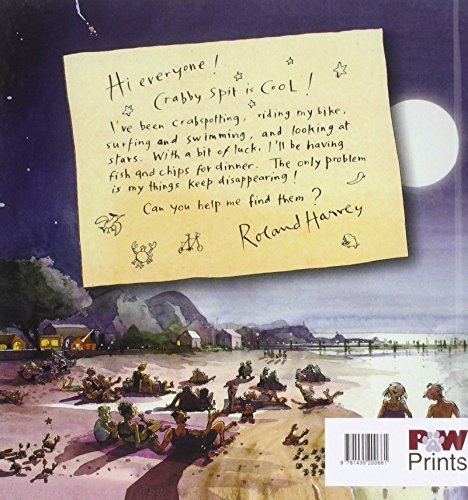 Hi everyone!
Crabby Spit is COOL!
I've been crabspotting, riding my bike,
surfing and swimming, and looking at
stars. With a bit of luck, I'll be having
fish and chips for dinner. The only problem
is my things keep disappearing!
Can you help me find them?
Roland Harvey
9 781435 200661
PAW
Prints